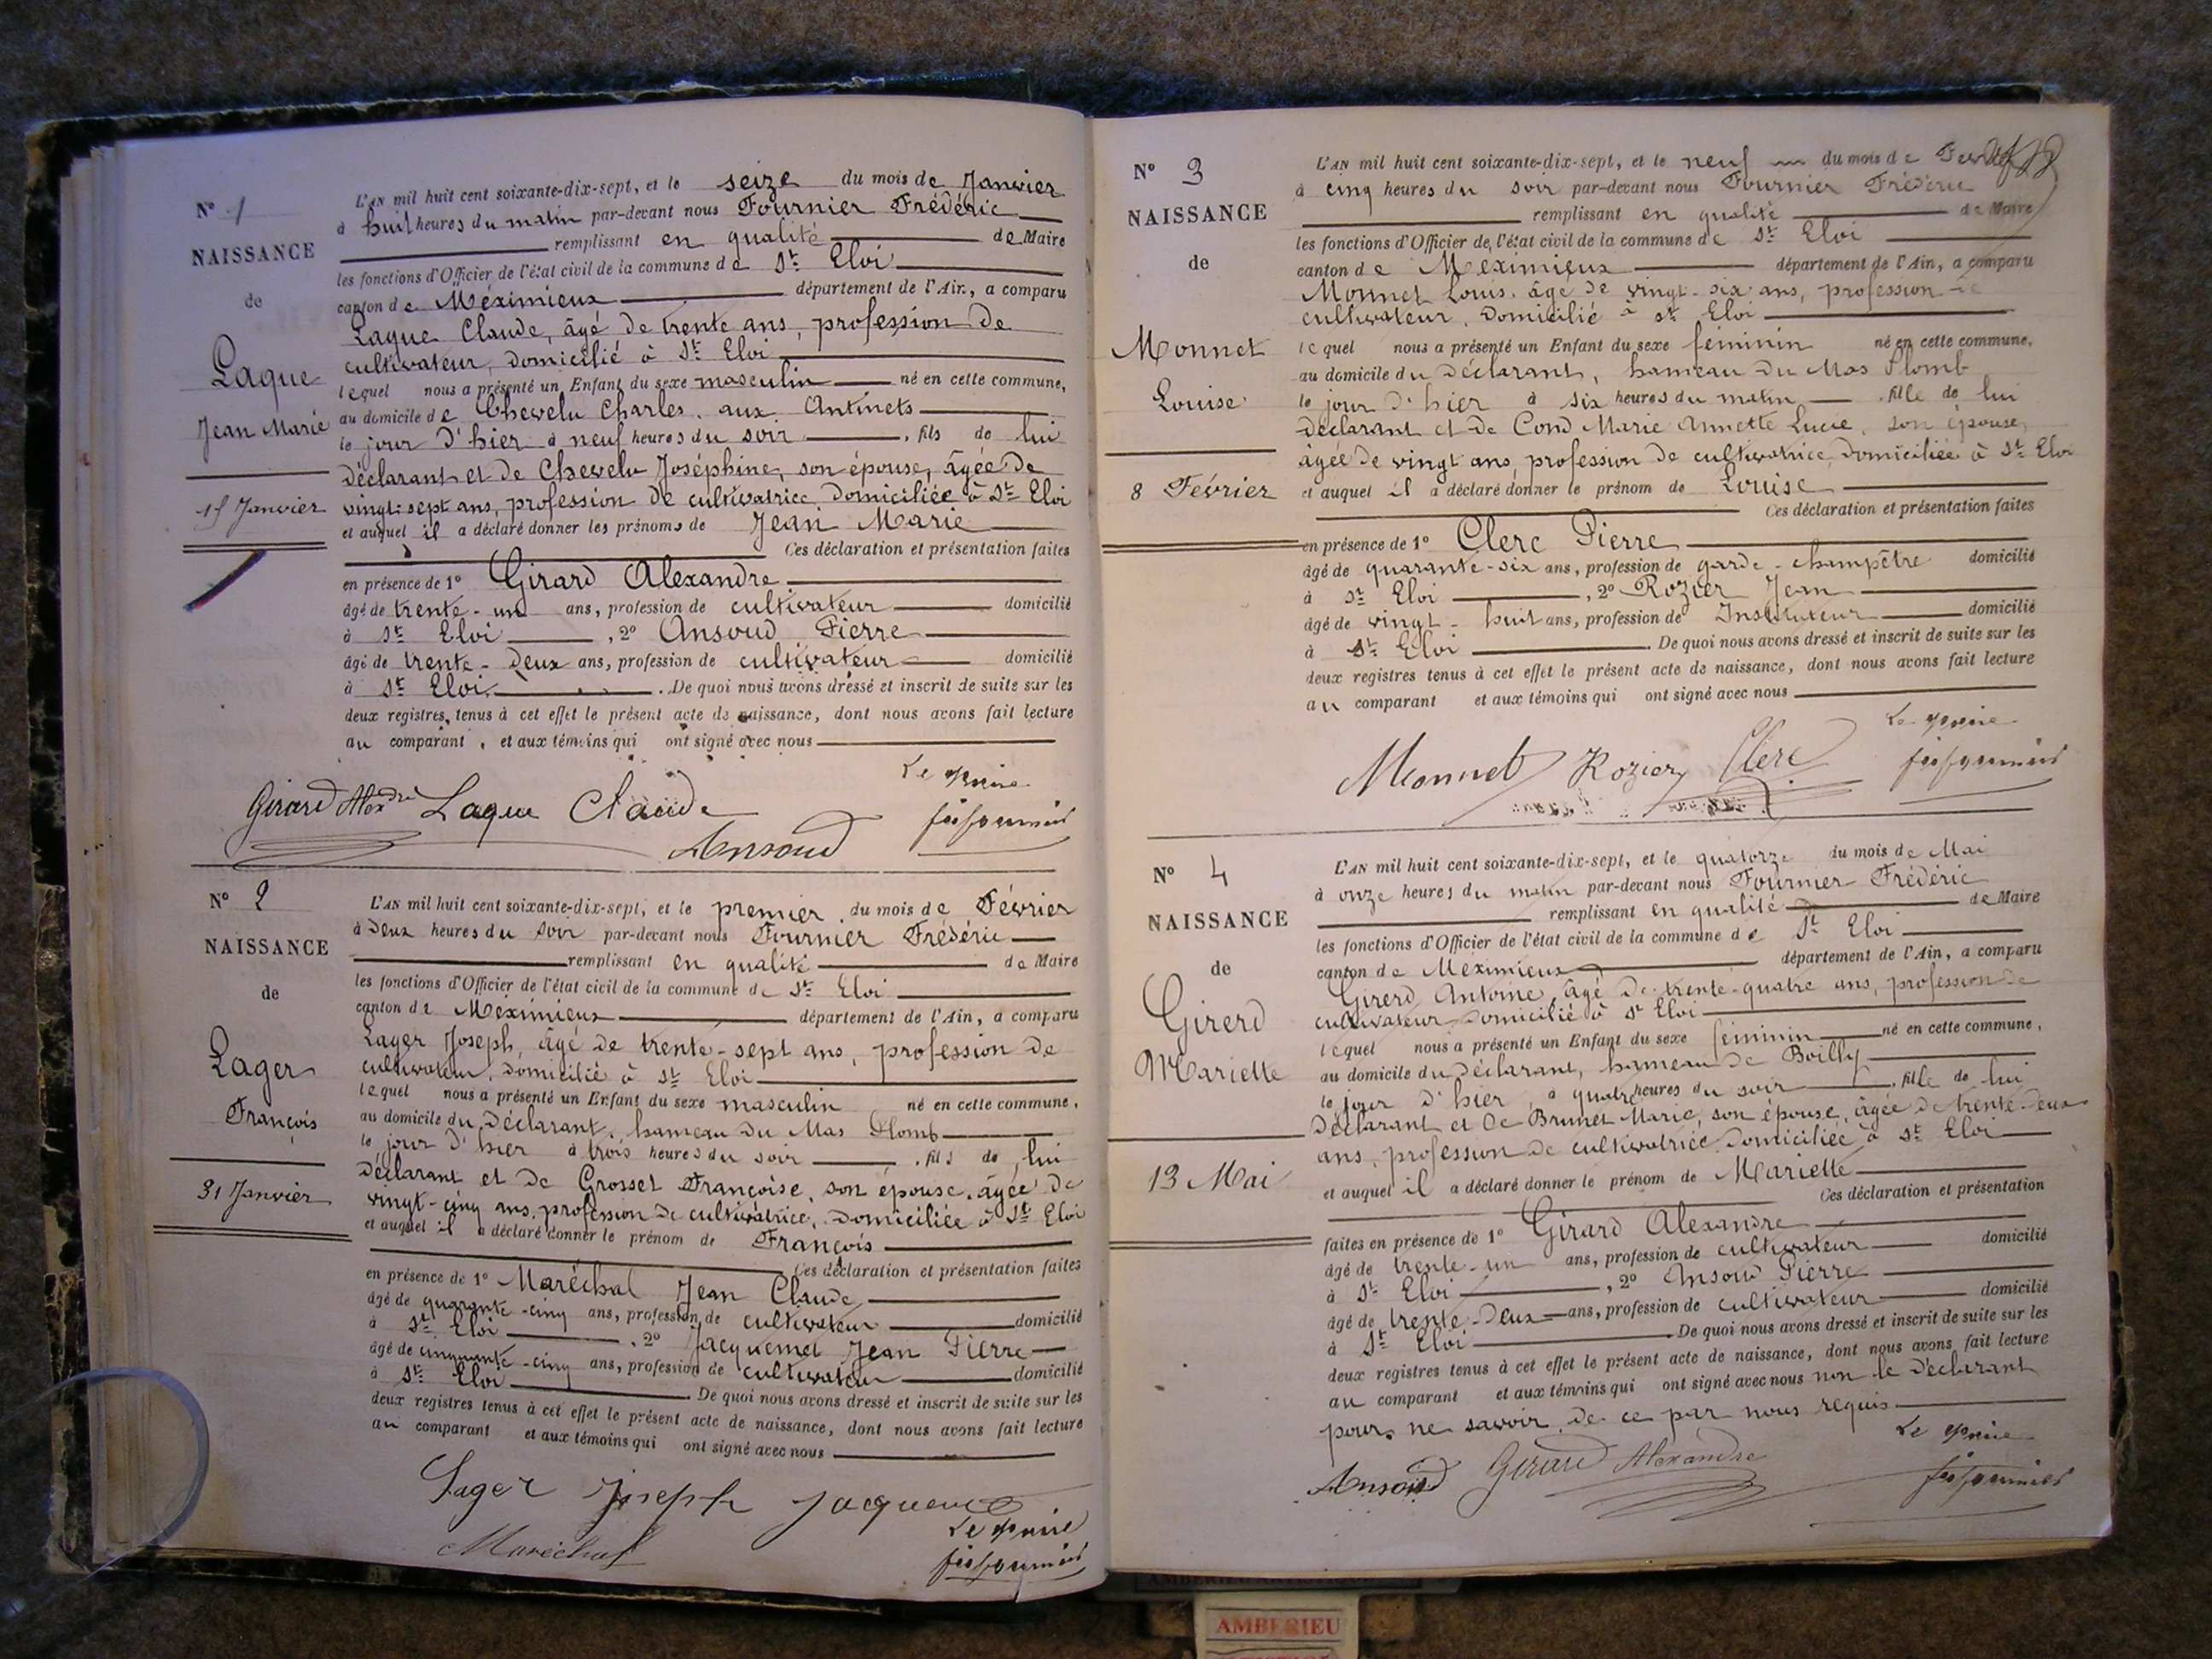 N° 1
NAISSANCE
de
Laque
Jean Marie
15 Janvier
L'AN mil huit cent soixante-dix-sept, et le seize du mois de Janvier
à huit heures du matin par-devant nous Fournier Frédéric
remplissant en qualité de Maire
les fonctions d'Officier de l'état civil de la commune de St Eloi
canton de Méximieux département de l'Ain, a comparu
Laque Claude, âgé de trente ans, profession de
cultivateur, domicilié à St Eloi
lequel nous a présenté un Enfant du sexe masculin né en cette commune,
au domicile de Chevelu Charles, aux Antinets
le jour d'hier à neuf heures du soir, fils de lui
déclarant et de Chevelu Joséphine, son épouse, âgée de
vingt-sept ans, profession de cultivatrice, domiciliée à St Eloi
et auquel il a déclaré donner les prénoms de Jean Marie
Ces déclaration et présentation faites
en présence de 1° Girard Alexandre
âgé de trente-un ans, profession de cultivateur domicilié
à St Eloi, 2° Ansoud Pierre
âgé de trente-deux ans, profession de cultivateur domicilié
à St Eloi. De quoi nous avons dressé et inscrit de suite sur les
deux registres tenus à cet effet le présent acte de naissance, dont nous avons fait lecture
au comparant, et aux témoins qui ont signé avec nous
Le Maire
Girard Alexdre Laque Claude
Ansoud
N° 2
NAISSANCE
de
Lager
François
31 Janvier
L'AN mil huit cent soixante-dix-sept, et le premier du mois de Février
à deux heures du soir par-devant nous Fournier Frédéric
remplissant en qualité de Maire
les fonctions d'Officier de l'état civil de la commune de St Eloi
canton de Méximieux département de l'Ain, a comparu
Lager Joseph, âgé de trente-sept ans, profession de
cultivateur, domicilié à St Eloi
lequel nous a présenté un Enfant du sexe masculin né en cette commune,
au domicile du déclarant, hameau du Mas Plomb
le jour d'hier à trois heures du soir, fils de lui
déclarant et de Grosset Françoise, son épouse, âgée de
vingt-cinq ans, profession de cultivatrice, domiciliée à St Eloi
et auquel il a déclaré donner le prénom de François
Ces déclaration et présentation faites
en présence de 1° Maréchal Jean Claude
âgé de quarante-cinq ans, profession de cultivateur domicilié
à St Eloi, 2° Jacquemet Jean Pierre
âgé de cinquante-cinq ans, profession de cultivateur domicilié
à St Eloi De quoi nous avons dressé et inscrit de suite sur les
deux registres tenus à cet effet le présent acte de naissance, dont nous avons fait lecture
au comparant et aux témoins qui ont signé avec nous
Lager Joseph Jacquemet
Le Maire
Maréchal
N° 3
NAISSANCE
de
Monnet
Louise
8 Février
L'AN mil huit cent soixante-dix-sept, et le neuf du mois de Février
à cinq heures du soir par-devant nous Fournier Frédéric
remplissant en qualité de Maire
les fonctions d'Officier de l'état civil de la commune de St Eloi
canton de Méximieux département de l'Ain, a comparu
Monnet Louis, âgé de vingt-six ans, profession de
cultivateur, domicilié à St Eloi
lequel nous a présenté un Enfant du sexe féminin né en cette commune,
au domicile du déclarant, hameau du Mas Plomb
le jour d'hier à six heures du matin, fille de lui
déclarant et de Cond Marie Annette Lucie, son épouse,
âgée de vingt ans, profession de cultivatrice, domiciliée à St Eloi
et auquel il a déclaré donner le prénom de Louise
Ces déclaration et présentation faites
en présence de 1° Clerc Pierre
âgé de quarante-six ans, profession de garde-champêtre domicilié
à St Eloi, 2° Rozier Jean
âgé de vingt-huit ans, profession de Instituteur domicilié
à St Eloi. De quoi nous avons dressé et inscrit de suite sur les
deux registres tenus à cet effet le présent acte de naissance, dont nous avons fait lecture
au comparant et aux témoins qui ont signé avec nous
Le Maire
Monnet Rozier Clerc
N° 4
NAISSANCE
de
Girerd
Mariette
13 Mai
L'AN mil huit cent soixante-dix-sept, et le quatorze du mois de Mai
à onze heures du matin par-devant nous Fournier Frédéric
remplissant en qualité de Maire
les fonctions d'Officier de l'état civil de la commune de St Eloi
canton de Méximieux département de l'Ain, a comparu
Girerd Antoine, âgé de trente-quatre ans, profession de
cultivateur, domicilié à St Eloi
lequel nous a présenté un Enfant du sexe féminin né en cette commune,
au domicile du déclarant, hameau de Boilly
le jour d'hier, à quatre heures du soir, fille de lui
déclarant et de Brunet Marie, son épouse, âgée de trente-deux
ans, profession de cultivatrice, domiciliée à St Eloi
et auquel il a déclaré donner le prénom de Mariette
Ces déclaration et présentation
faites en présence de 1° Girard Alexandre
âgé de trente-un ans, profession de cultivateur domicilié
à St Eloi, 2° Ansoud Pierre
âgé de trente-deux ans, profession de cultivateur domicilié
à St Eloi De quoi nous avons dressé et inscrit de suite sur les
deux registres tenus à cet effet le présent acte de naissance, dont nous avons fait lecture
au comparant et aux témoins qui ont signé avec nous non le déclarant
pour ne savoir de ce par nous requis
Le Maire
Ansoud Girard Alexandre
AMBERIEU